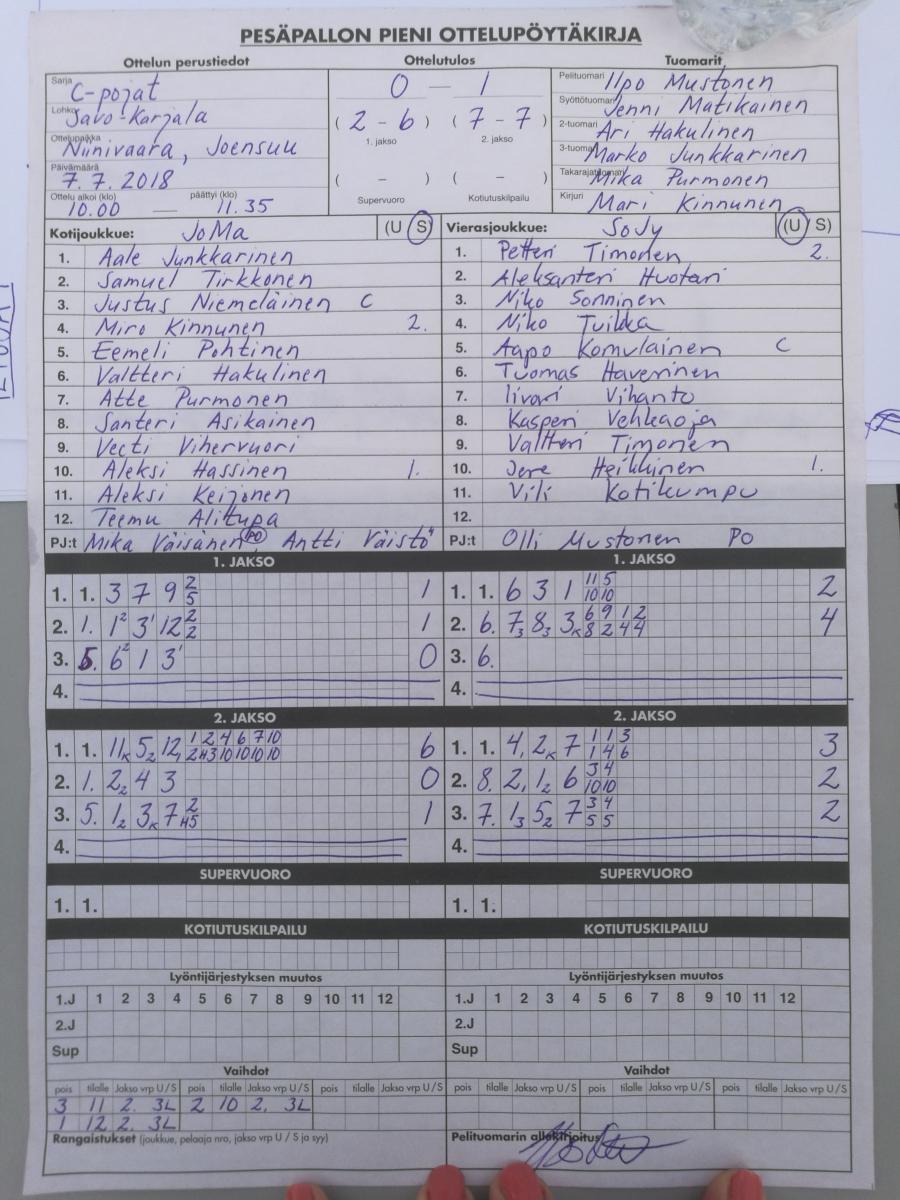 PESÄPALLON PIENI OTTELUPÖYTÄKIRJA
Ottelun perustiedot Ottelutulos Tuomarit
Sarja C-pojat 0 — 1 Pelituomari Ilpo Mustonen
Lohko Savo-Karjala ( 2 - 6 ) ( 7 - 7 ) Syöttötuomari Jenni Matikainen
1. jakso 2. jakso 2-tuomari Ari Hakulinen
Ottelupaikka Niinivaara, Joensuu 3-tuomari Marko Junkkarinen
Päivämäärä 7.7.2018 ( - ) ( - ) Takarajatuomari Mika Purmonen
Ottelu alkoi (klo) 10.00 — päättyi (klo) 11.35 Supervuoro Kotiutuskilpailu Kirjuri Mari Kinnunen
Kotijoukkue: JoMa (U S) Vierasjoukkue: SoJy (U/S)
1. Aale Junkkarinen 1. Petteri Timonen 2.
2. Samuel Tirkkonen 2. Aleksanteri Huotari
3. Justus Niemeläinen C 3. Niko Sonninen
4. Miro Kinnunen 2. 4. Niko Tuikka
5. Eemeli Pohtinen 5. Aapo Komulainen C
6. Valtteri Hakulinen 6. Tuomas Haverinen
7. Atte Purmonen 7. Iivari Vihanto
8. Santeri Asikainen 8. Kasperi Vehkaoja
9. Veeti Vihervuori 9. Valtteri Timonen
10. Aleksi Hassinen 1. 10. Jere Heikkinen 1.
11. Aleksi Keijonen 11. Vili Kotikumpu
12. Teemu Alitupa 12.
PJ:t Mika Väisänen PO, Antti Väistö PJ:t Olli Mustonen PO
1. JAKSO 1. JAKSO
1. 1. 3 7 9 2/5 1 1. 1. 6 3 1 11/10 5/10 2
2. 1. 1² 3' 12 2/2 1 2. 6. 7₃ 8₃ 3ₖ 6/8 9/2 1/4 2/4 4
3. 5. 6² 1 3' 0 3. 6.
4. 4.
2. JAKSO 2. JAKSO
1. 1. 11ₖ 5₂ 12, 1 2 4 6 7 10 6 1. 1. 4, 2ₖ 7 1/1 1/4 3/6 3
2. 1. 2₂ 4 3 0 2. 8. 2, 1₂ 6 3/10 4/10 2
3. 5. 1₂ 3ₖ 7 2/H5 1 3. 7. 1₃ 5₂ 7 3/5 4/5 2
4. 4.
SUPERVUORO SUPERVUORO
1. 1. 1. 1.
KOTIUTUSKILPAILU KOTIUTUSKILPAILU
Lyöntijärjestyksen muutos Lyöntijärjestyksen muutos
1.J 1 2 3 4 5 6 7 8 9 10 11 12 1.J 1 2 3 4 5 6 7 8 9 10 11 12
2.J 2.J
Sup Sup
Vaihdot Vaihdot
pois tilalle Jakso vrp U/S pois tilalle Jakso vrp U/S pois tilalle Jakso vrp U/S pois tilalle Jakso vrp U/S pois tilalle Jakso vrp U/S pois tilalle Jakso vrp U/S
3 11 2. 3L 2 10 2. 3L
1 12 2. 3L
Rangaistukset (joukkue, pelaaja nro, jakso vrp U / S ja syy) Pelituomarin allekirjoitus